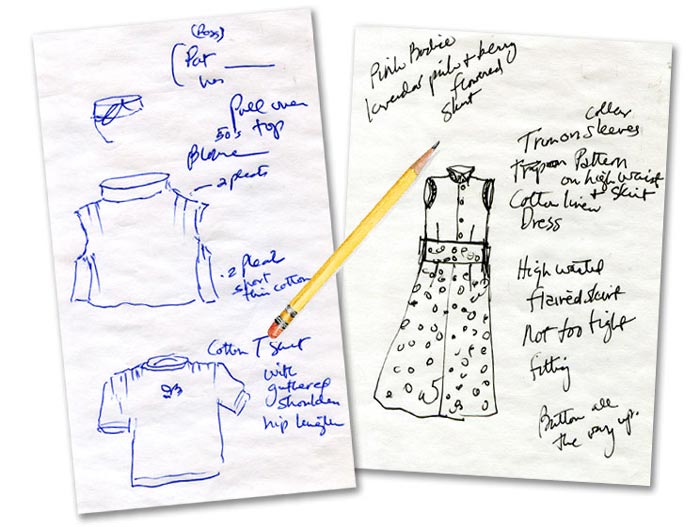 (Ross)
(Pat
has
Pull over
50's top
Blouse
2 pleats
. 2 pleats
short
thin cotton
Cotton T shirt
with
gathered
shoulders
hip length
Pink Bodice
lavendar pink + berry
flowered
skirt
Collar
Trim on sleeves
Pattern
on high waist
+ skirt
Cotton linen
Dress
High waisted
flaired skirt
Not too tight
fitting
Button all
the way up.